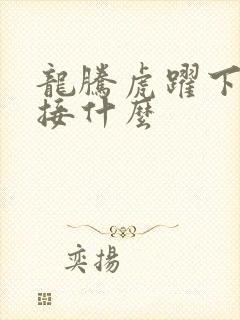 龍騰虎躍下
接什麼
奕揚